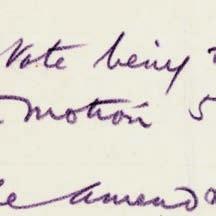 Vote being
motion 5
Amend